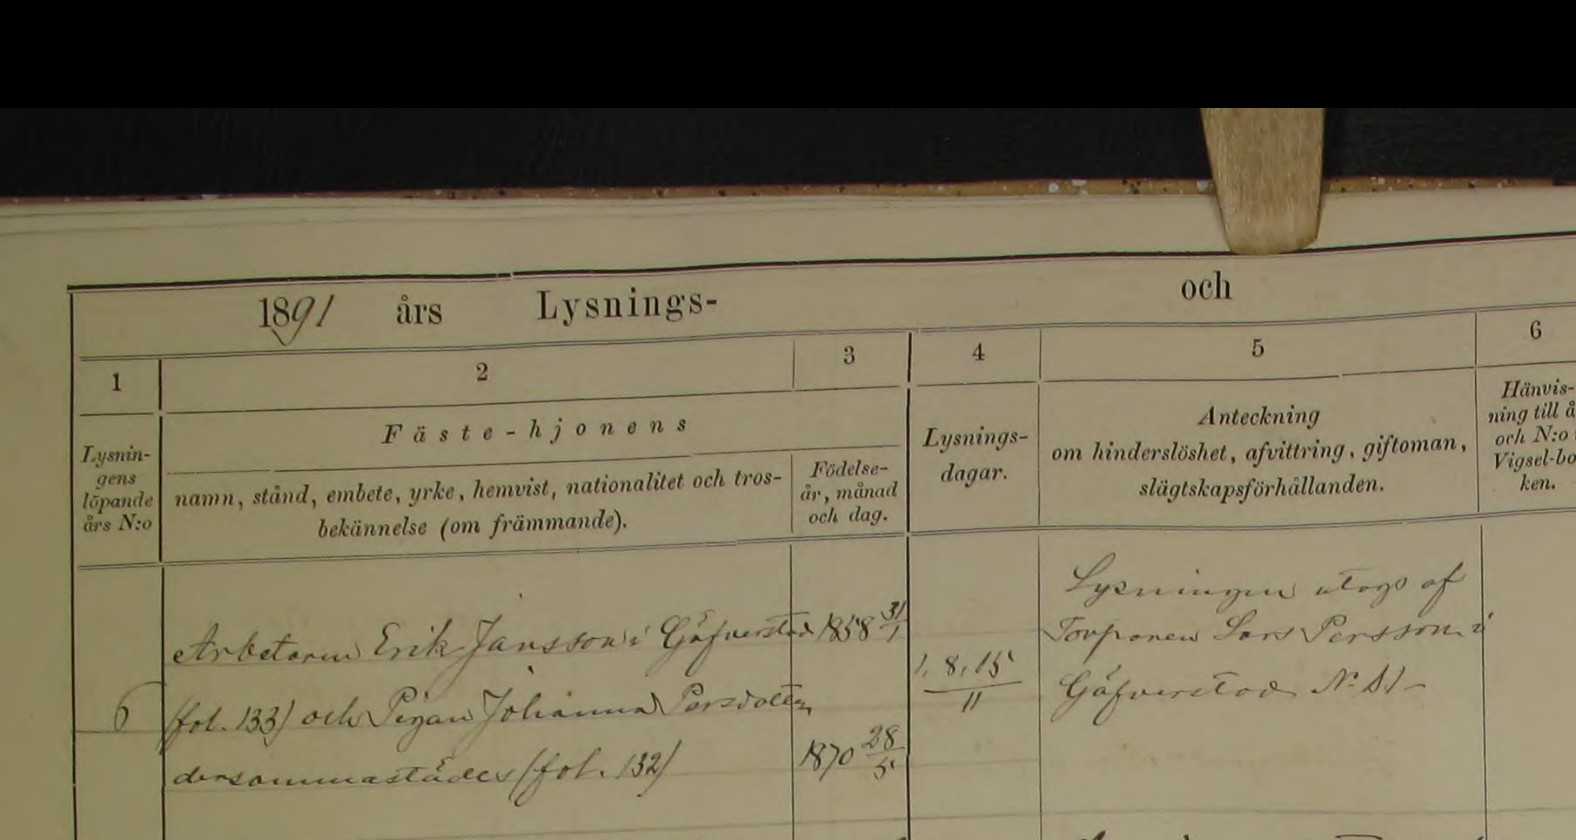 1891 års Lysnings- och
1 2 3 4 5 6
Lysnin-
gens
löpande
års N:o
Fäste-hjonens
namn, stånd, embete, yrke, hemvist, nationalitet och tros-
bekännelse (om främmande).
Födelse-
år, månad
och dag.
Lysnings-
dagar.
Anteckning
om hinderslöshet, afvittring, giftoman,
slägtskapsförhållanden.
Hänvis-
ning till å
och N:o i
Vigsel-bo
ken.
6
Arbetaren Erik Jansson i Gäfverstad
(fol. 133) och Pigan Johanna Persdotter
dersammastädes (fol. 132)
1858 31/1
1870 28/5
1, 8, 15
11
Lysningen utogs af
Torparen Lars Persson i
Gäfverstad N:o